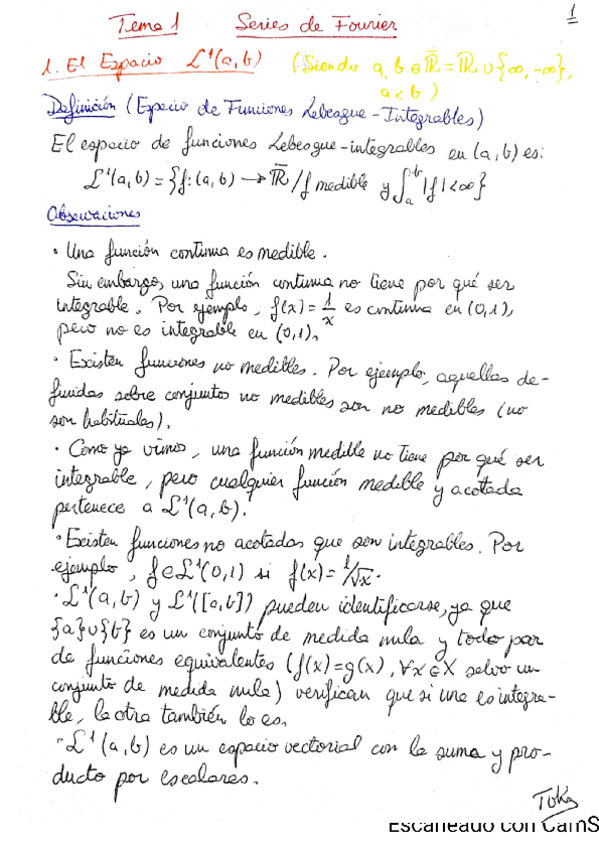 1
Tema 1 Series de Fourier
1. El Espacio L¹(a,b) (Siendo a,b ∈ R̄ = R ∪ {∞, -∞},
a < b)
Definición (Espacio de Funciones Lebesgue-Integrables)
El espacio de funciones Lebesgue-integrables en (a,b) es:
L¹(a,b) = {f:(a,b) → R̄ / f medible y ∫ₐᵇ |f| < ∞}
Observaciones
• Una función continua es medible.
Sin embargo, una función continua no tiene por qué ser
integrable. Por ejemplo, f(x) = 1/x es continua en (0,1),
pero no es integrable en (0,1).
• Existen funciones no medibles. Por ejemplo, aquellas de-
finidas sobre conjuntos no medibles son no medibles (no
son habituales).
• Como ya vimos, una función medible no tiene por qué ser
integrable, pero cualquier función medible y acotada
pertenece a L¹(a,b).
• Existen funciones no acotadas que son integrables. Por
ejemplo, f ∈ L¹(0,1) si f(x) = 1/√x.
• L¹(a,b) y L¹([a,b]) pueden identificarse, ya que
{a}∪{b} es un conjunto de medida nula y todo par
de funciones equivalentes (f(x)=g(x), ∀x ∈ X salvo un
conjunto de medida nula) verifican que si una es integra-
ble, la otra también lo es.
• L¹(a,b) es un espacio vectorial con la suma y pro-
ducto por escalares.
Escaneado con CamS